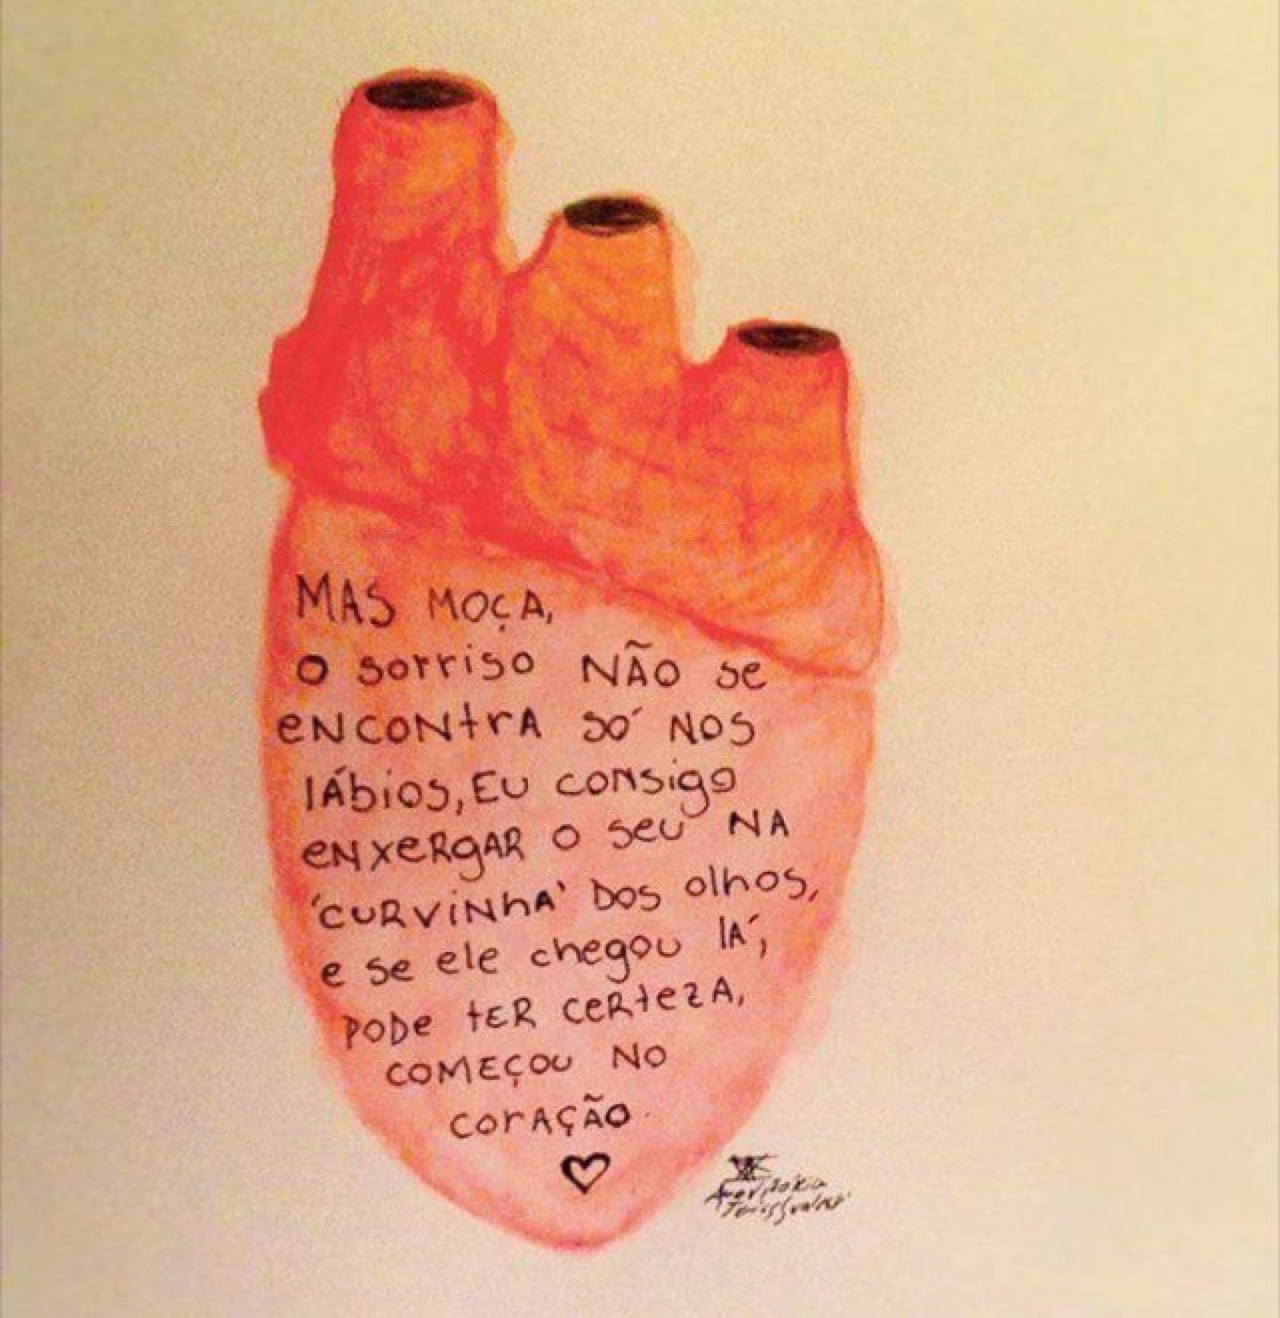 MAS MOÇA,
O sorriso NÃO se
eNCONtrA SÓ NOS
lÁbios, EU consigo
eNxeRgAR o seu NA
'CURViNhA' DOS olhos,
e se ele chegou lÁ,
PODe tER ceRtezA,
COMEÇOU NO
corAÇÃO